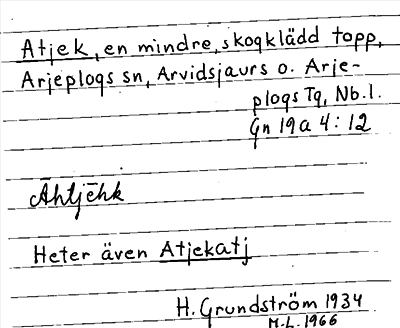 Atjek, en mindre, skogklädd topp,
Arjeplogs sn, Arvidsjaurs o. Arje-
plogs Tg, Nb.l.
Gn 19a 4:12
Āhtjēhk
Heter även Atjekatj
H. Grundström 1934
M.L. 1966